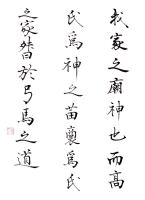 我家之廟神也而高
氏爲神之苗裔爲氏
之家督於弓馬之道